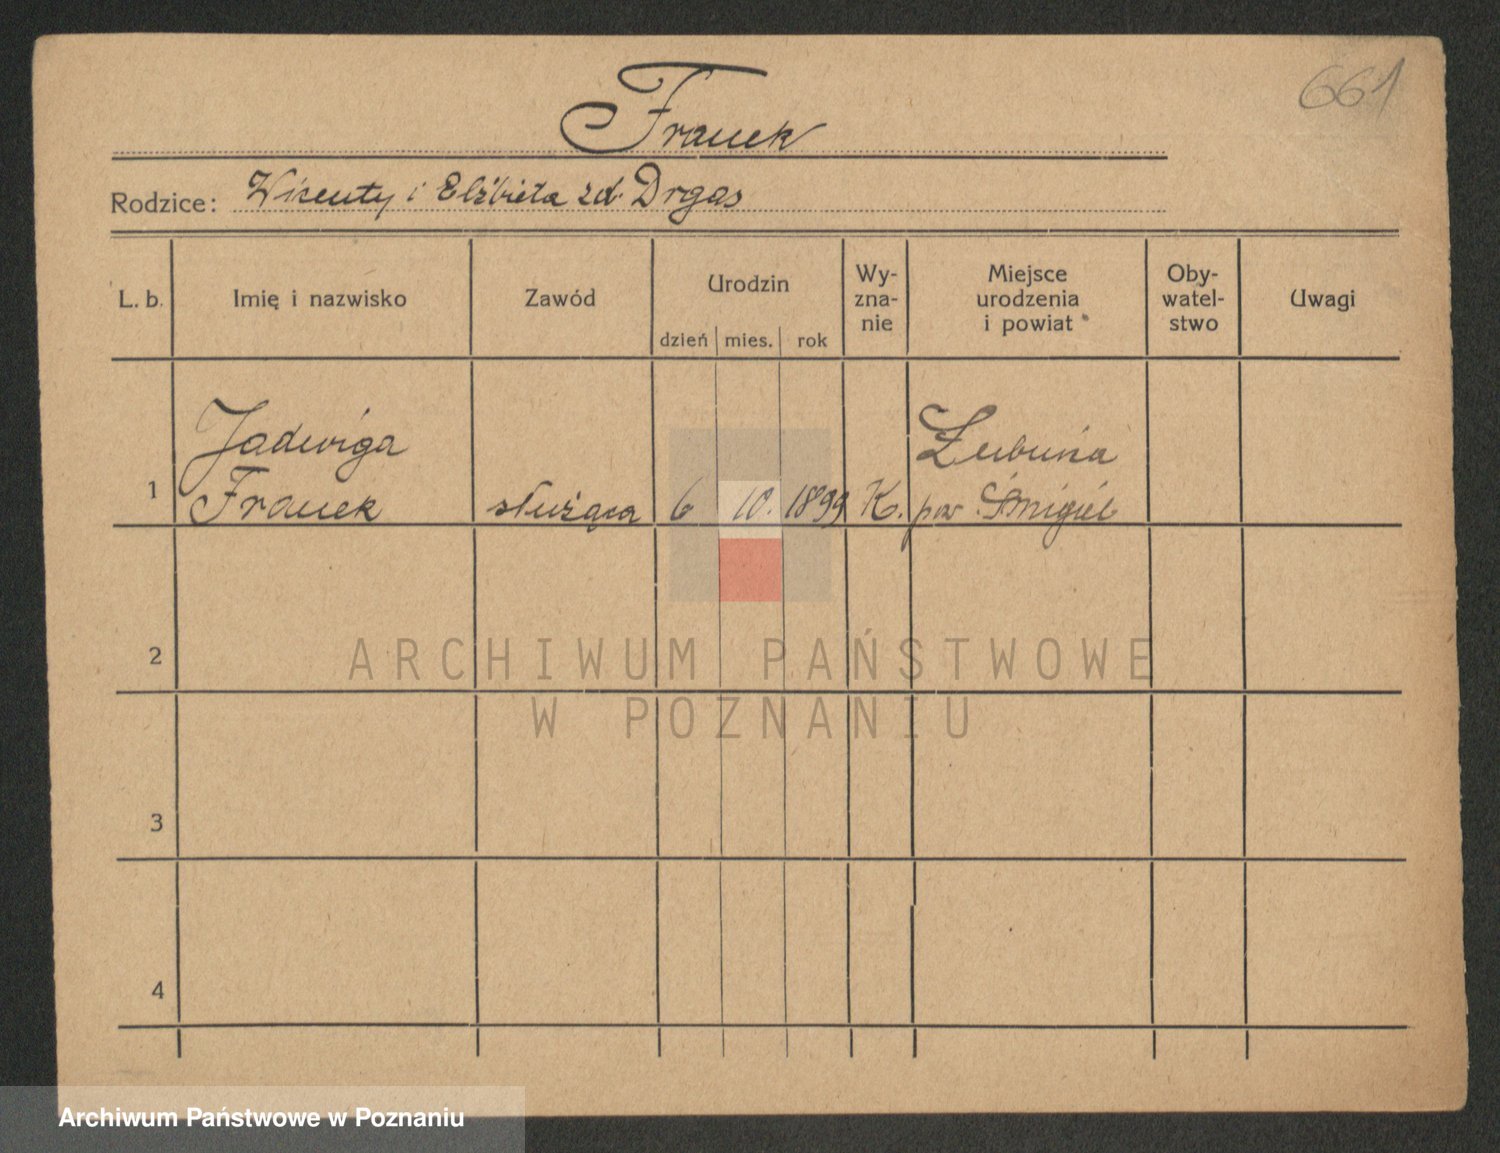 661
Franek
Rodzice: Wicenty i Elżbieta zd. Drgas
L. b. Imię i nazwisko Zawód Urodzin dzień mies. rok Wy-zna-nie Miejsce urodzenia i powiat Oby-watel-stwo Uwagi
Jadwiga
1 Franek służąca 6 10. 1899 K. pow. Śmigiel
2
3
4
ARCHIWUM PAŃSTWOWE
W POZNANIU
Archiwum Państwowe w Poznaniu